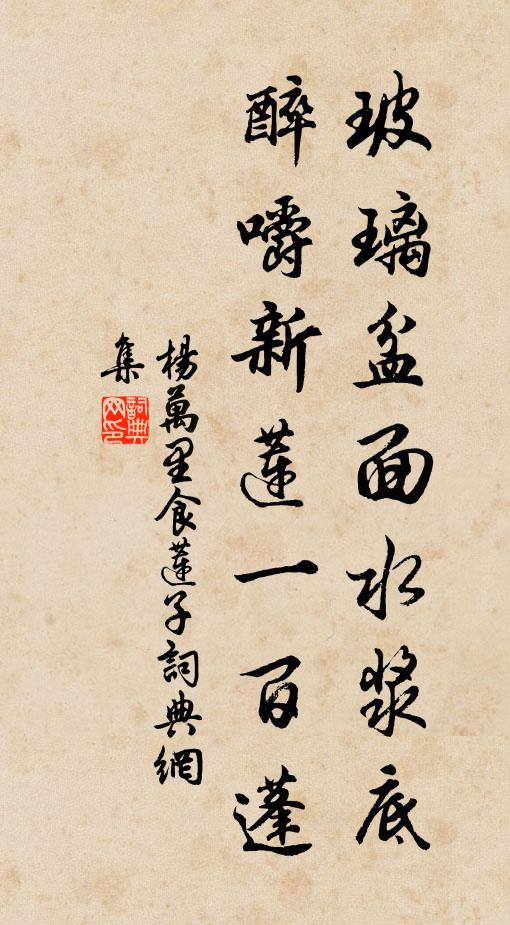 玻璃盆面水漿底
醉嚼新蓮一百蓬
楊萬里食蓮子詞典網
集
詞典网印